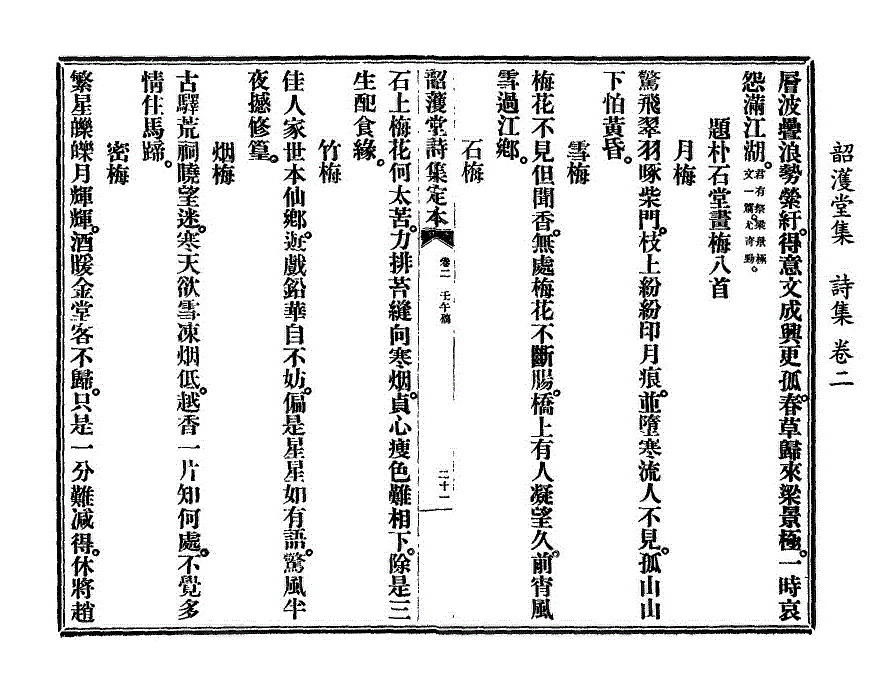 韶濩堂集　詩集 卷二
層波疊浪勢縈紆。得意文成興更孤。春草歸來梁景極。一時哀
怨滿江湖。君有祭梁景極文一篇。尤奇動。
題朴石堂畫梅八首
月梅
驚飛翠羽啄柴門。枝上紛紛印月痕。並墮寒流人不見。孤山山
下怕黃昏。
雪梅
梅花不見但聞香。無處梅花不斷腸。橋上有人凝望久。前宵風
雪過江鄉。
石梅
韶濩堂詩集定本　卷二　壬午稿　二十一
石上梅花何太苦。力排苔縫向寒烟。貞心瘦色難相下。除是三
生配食緣。
竹梅
佳人家世本仙鄉。遊戲鉛華自不妨。偏是星星如有語。驚風半
夜撼修篁。
烟梅
古驛荒祠曉望迷。寒天欲雪凍烟低。越香一片知何處。不覺多
情住馬蹄。
密梅
繁星皪皪月輝輝。酒暖金堂客不歸。只是一分難减得。休將趙